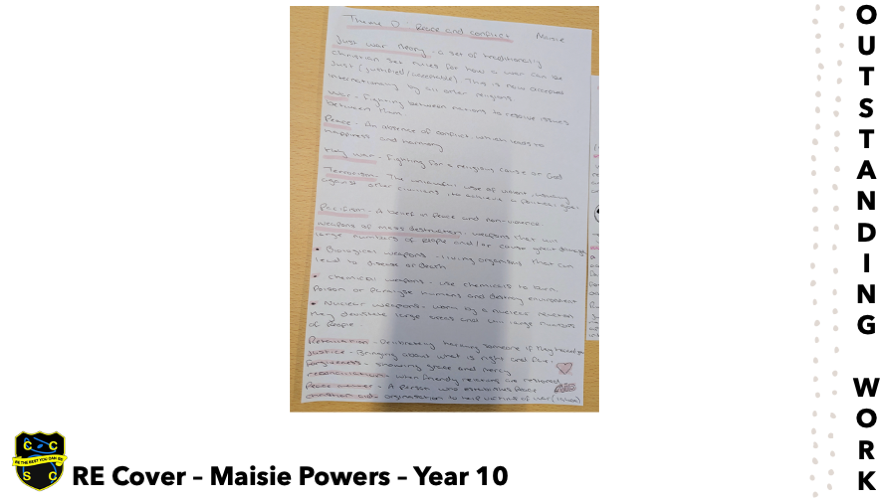 Theme D: Peace and conflict Maisie
Just war theory - a set of traditionally
Christian set rules for how a war can be
Just (justified/acceptable). This is now accepted
internationally by all other religions
War - Fighting between nations to resolve issues
between them
Peace - An absence of conflict, which leads to
happiness and harmony
Holy war - Fighting for a religious cause or God
Terrorism - The unlawful use of violence,
against other civilians, to achieve a political goal
Pacifism - A belief in Peace and non-violence
Weapons of mass destruction - weapons that can
large numbers of people and/or cause great damage
• Biological weapons - living organisms that can
lead to disease or death
• Chemical weapons - use chemicals to burn,
Poison or Paralyse humans and destroy
• Nuclear weapons - work by a nuclear reaction
they devastate large areas and kill large numbers
of people
Retaliation - Deliberately harming someone if they harmed you
Justice - Bringing about what is right and fair
Forgiveness - showing grace and mercy
reconciliation - when friendly relations are restored
Peace maker - A person who establishes Peace
organisation to help victims of war
OUTSTANDING WORK
CC
BE THE BEST YOU CAN BE
SC
RE Cover – Maisie Powers – Year 10